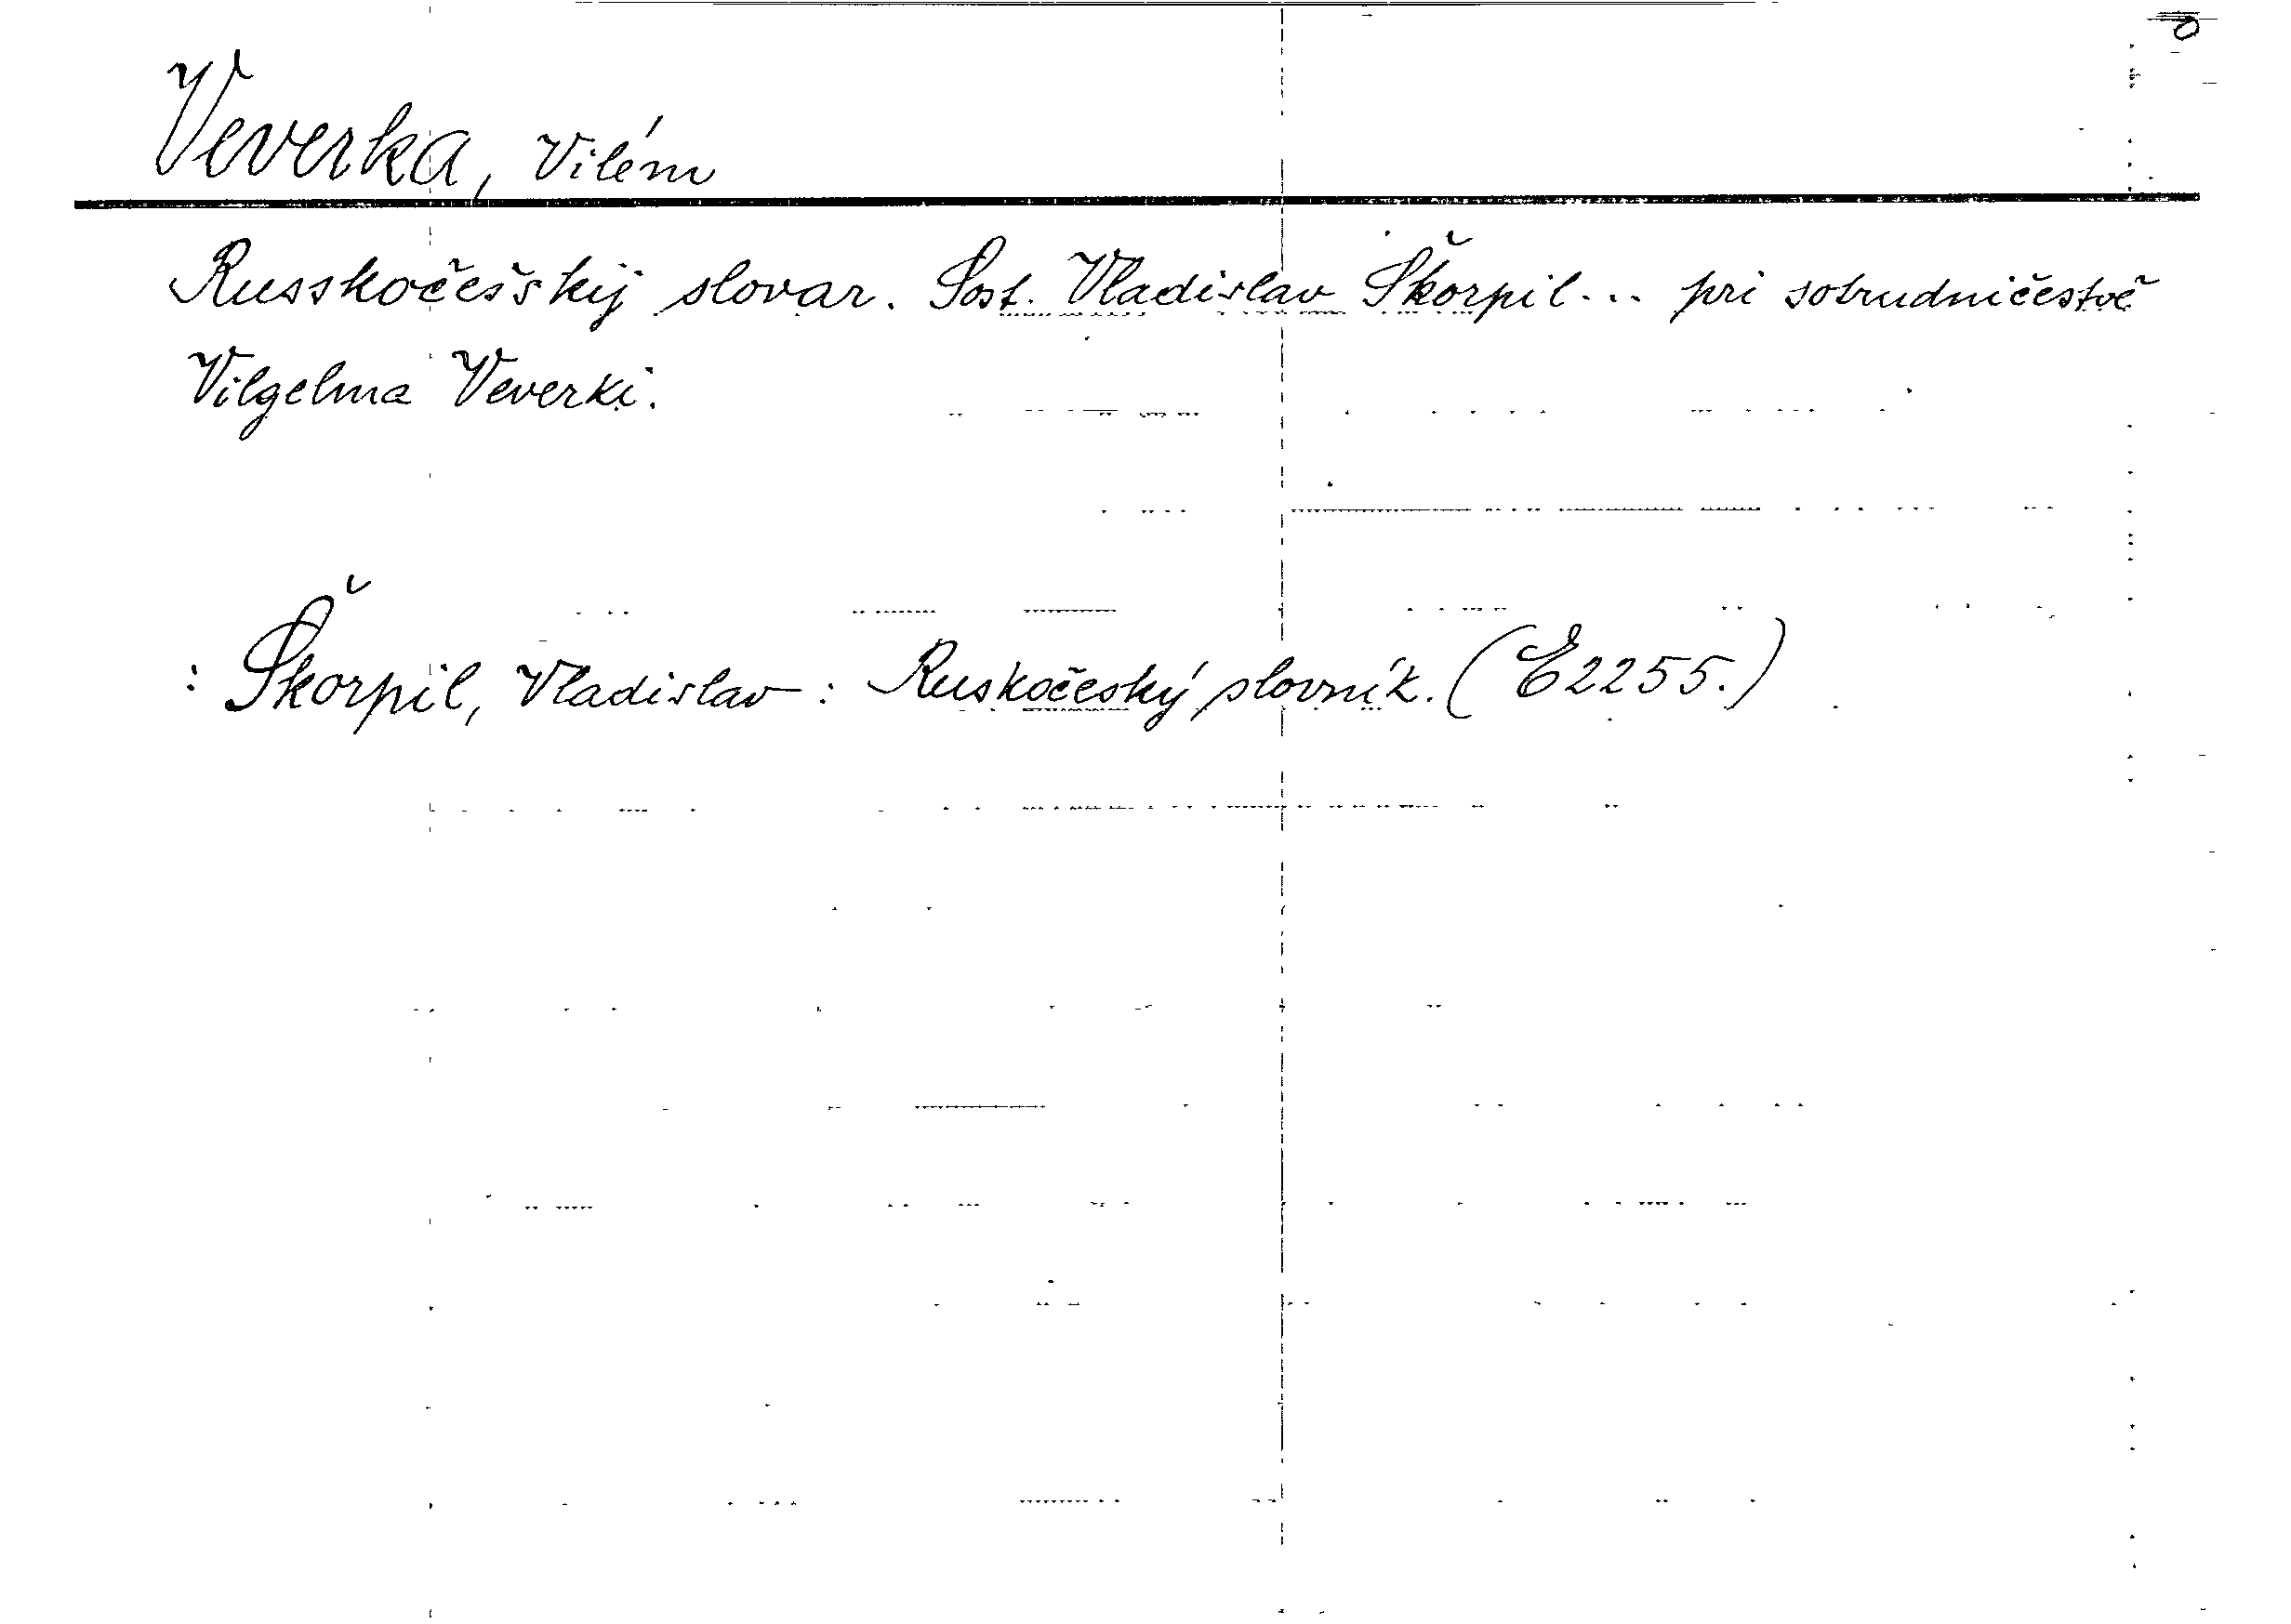 Veverka, Vilém
Russkočešskij slovar. Sost. Vladislav Škorpil... pri sotrudničestvě
Vilgelma Veverki.
: Škorpil, Vladislav: Ruskočeský slovník. (E2255.)